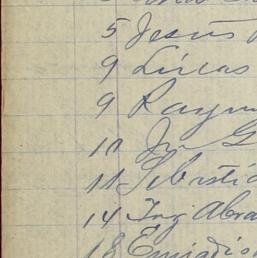 5 Jesús
9 Lucas
9 Raym
10 Jn G
11 Sebasti
14 Ing Abra
18 Emigdio